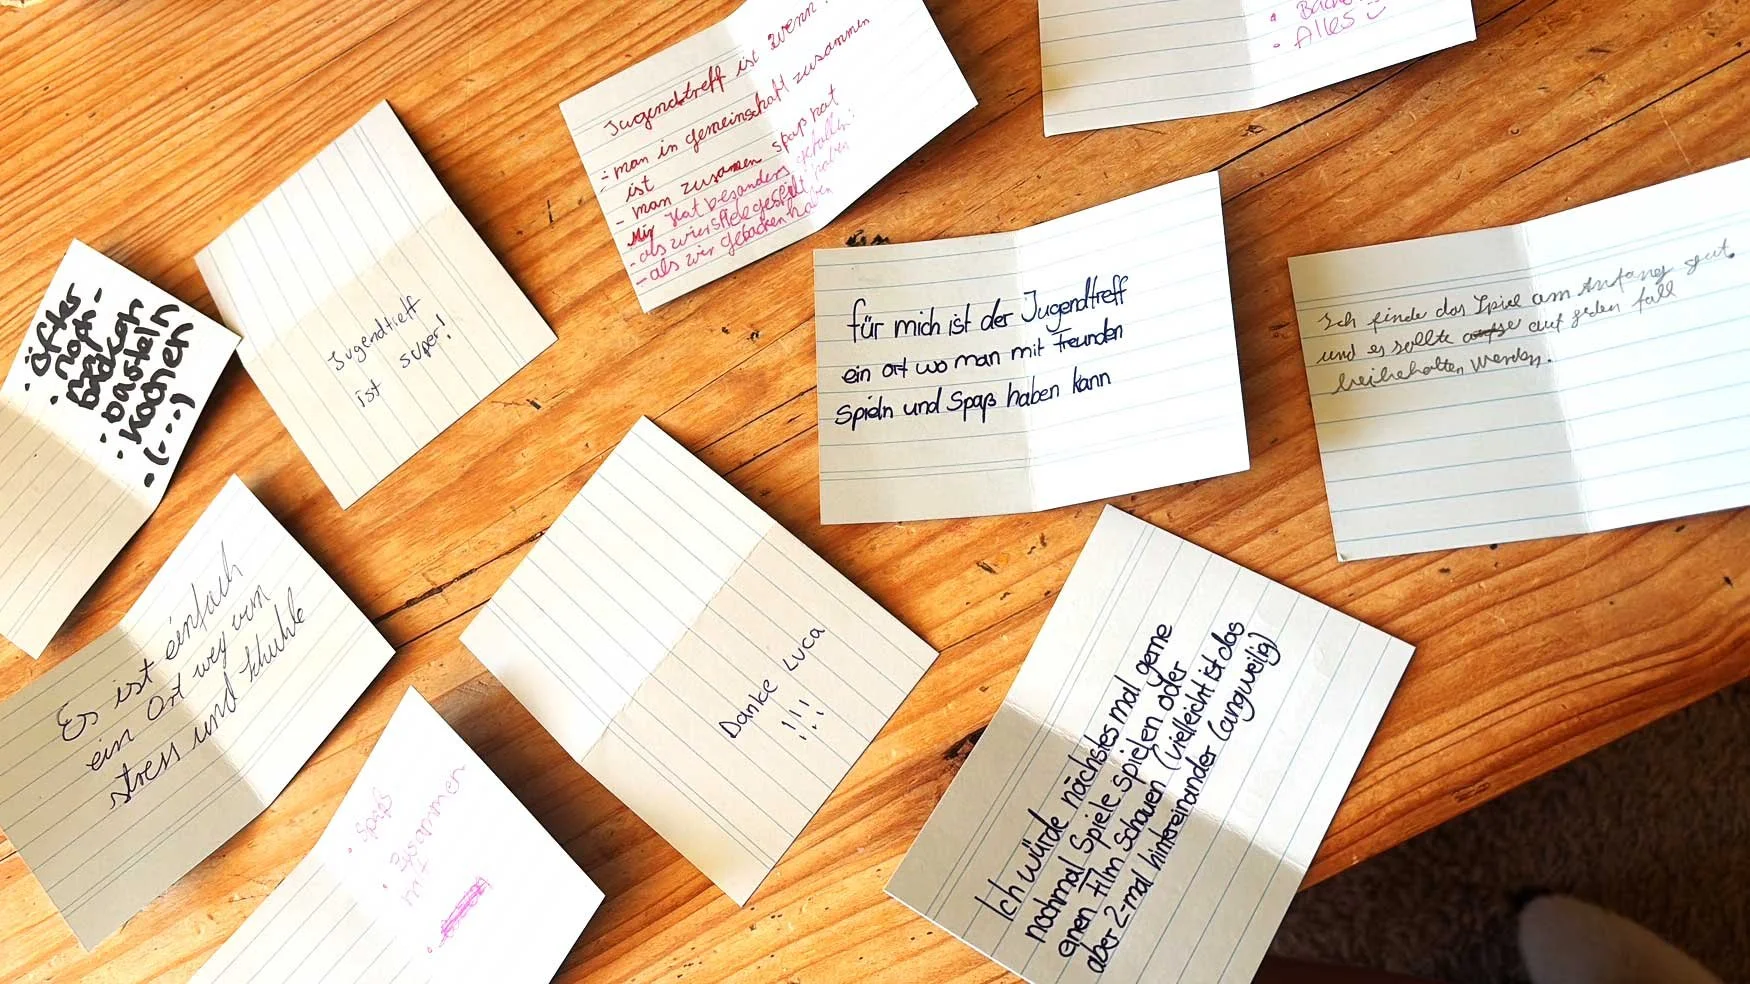 Jugendtreff ist wenn
- man in gemeinschaft zusammen
ist
- man zusamen spaß hat
Mir Hat besonders gefallen:
- als wir spiele gespielt haben
- als wir gebacken haben
• Backen
• Alles :)
• öfter
• noch-
mal
backen
• basteln
• kochen
• (---)
Jugendtreff
ist super!
für mich ist der Jugendtreff
ein ort wo man mit freunden
Spieln und Spaß haben kann
Ich finde das Spiel am Anfang gut
und es sollte auf jeden fall
beibehalten werden.
Es ist einfach
ein Ort weg von
stress und schuhle
Danke Luca
!!!
Ich würde nächstes mal gerne
nochmal Spiele spielen oder
einen Film schauen (vielleicht ist das
aber 2-mal hintereinander langweilig)
• Spaß
• Zusammen